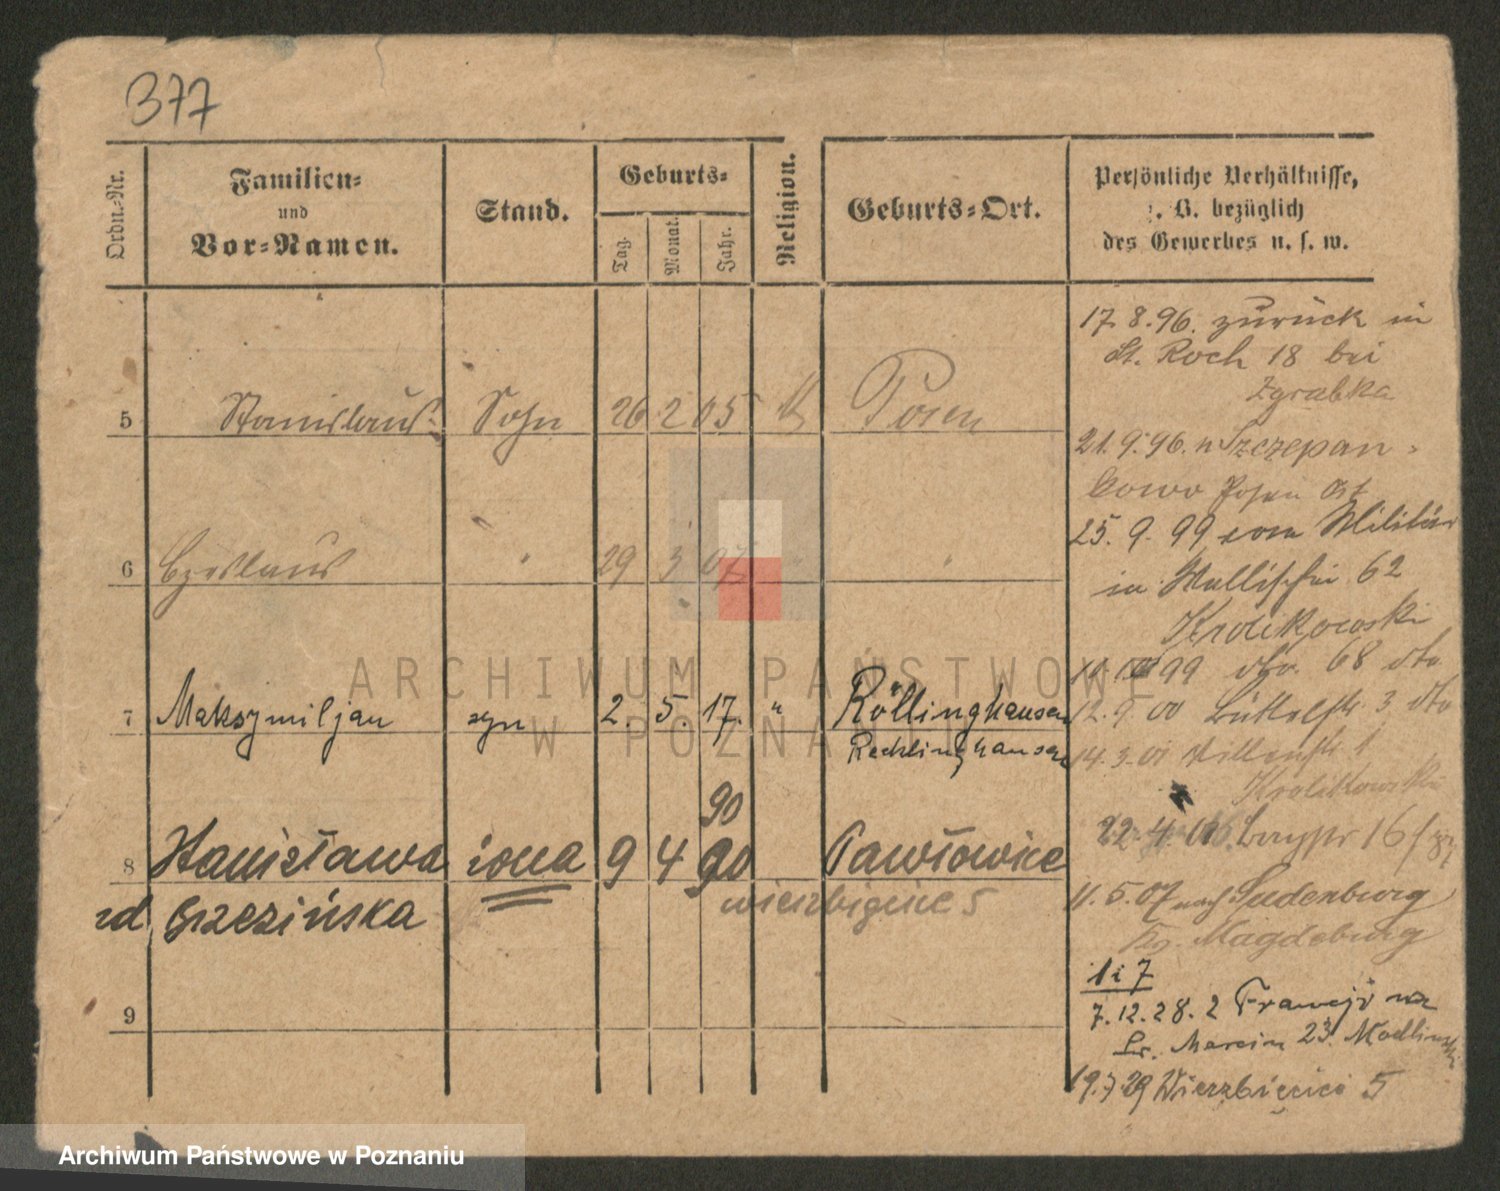 377
Ordn.-Nr.
Familien-
und
Vor-Namen.
Stand.
Geburts-
Tag.
Monat.
Jahr.
Religion.
Geburts-Ort.
Persönliche Verhältnisse,
z. B. bezüglich
des Gewerbes u. s. w.
17.8.96. zurück in
St. Roch 18 bei
Zgrabka
5 Stanislaus Sohn 26 2 05 k Posen
21.9.96. n Szczepan-
kowo Posen Ost
25.9.99 vom Militär
6 Czeslaus " 29 3 07 " "
in Wallischei 62
Krolikowski
99 dto. 68 dto
7 Maksymiljan syn 2. 5. 17. " Röllinghausen
Recklinghausen
12.9.00 3 dto
14.3.01 1
Krolikowski
90
22.4.06 16
8 Stanisława żona 9 4 90 Pawłowice
zd Brzezińska
wierzbięcice 5
11.5.07 nach Sudenburg
Kr. Magdeburg
1 i 7
7.12.28. z Francji na
św. Marcin 23. Modlinski
9
19.7.29 Wierzbięcice 5
ARCHIWUM PAŃSTWOWE
W POZNANIU
Archiwum Państwowe w Poznaniu